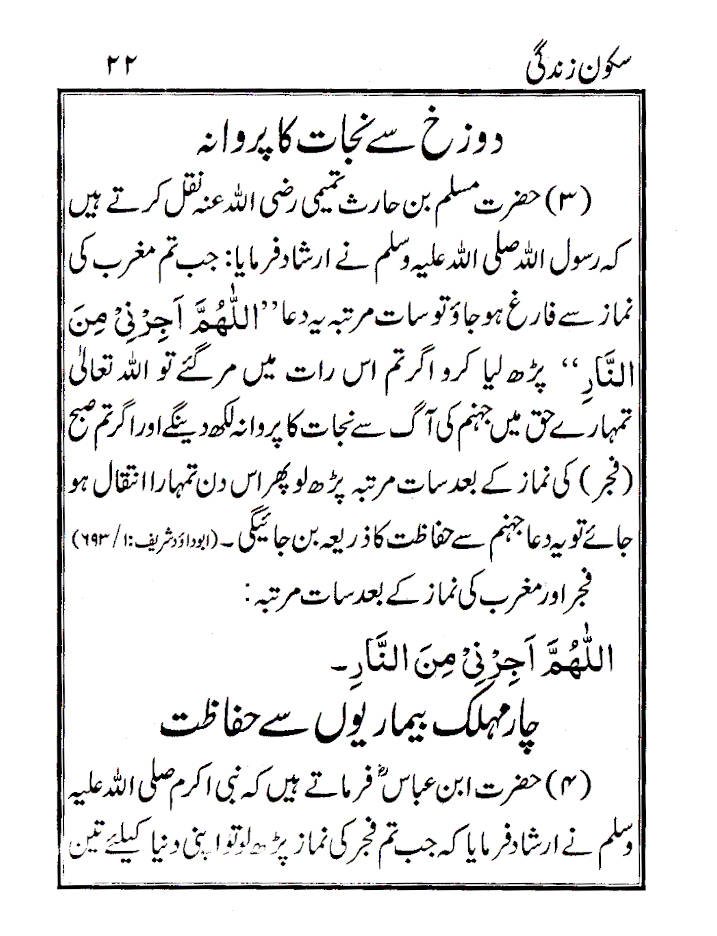 سکون زندگی ۲۲
دوزخ سے نجات کا پروانہ
(۳) حضرت مسلم بن حارث تمیمی رضی اللہ عنہ نقل کرتے ہیں
کہ رسول اللہ صلی اللہ علیہ وسلم نے ارشاد فرمایا: جب تم مغرب کی
نماز سے فارغ ہو جاؤ تو سات مرتبہ یہ دعا ’’اَللّٰهُمَّ اَجِرْنِیْ مِنَ
النَّارِ‘‘ پڑھ لیا کرو اگر تم اس رات میں مر گئے تو اللہ تعالیٰ
تمہارے حق میں جہنم کی آگ سے نجات کا پروانہ لکھ دینگے اور اگر تم صبح
(فجر) کی نماز کے بعد سات مرتبہ پڑھ لو پھر اس دن تمہارا انتقال ہو
جائے تو یہ دعا جہنم سے حفاظت کا ذریعہ بن جائیگی۔ (ابوداؤد شریف: ۱/ ۶۹۳)
فجر اور مغرب کی نماز کے بعد سات مرتبہ:
اَللّٰهُمَّ اَجِرْنِیْ مِنَ النَّارِ۔
چار مہلک بیماریوں سے حفاظت
(۴) حضرت ابن عباسؓ فرماتے ہیں کہ نبی اکرم صلی اللہ علیہ
وسلم نے ارشاد فرمایا کہ جب تم فجر کی نماز پڑھ لو تو اپنی دنیا کیلئے تین